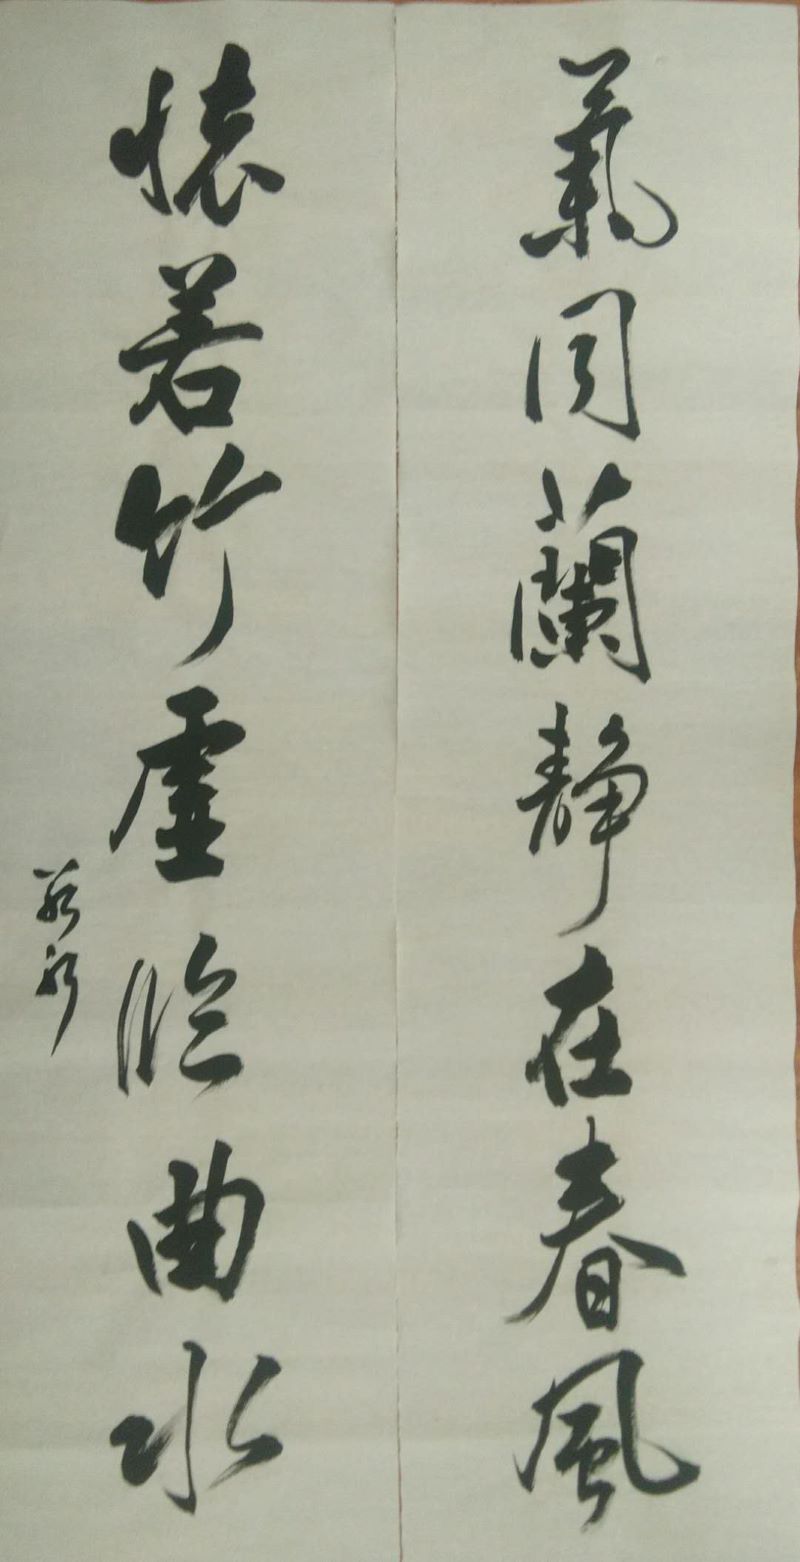 氣同蘭靜在春風
懷若竹虛臨曲水